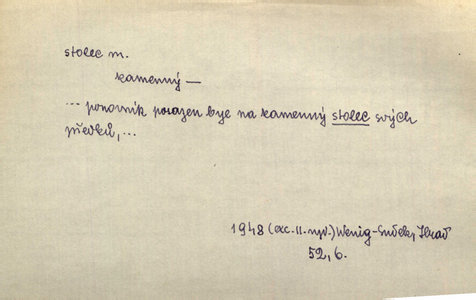 stolec m.
kamenný —
... panovník posazen byl na kamenný stolec svých
předků, ...
1948 (exc. 11. vyd.) Wenig-
52, 6.